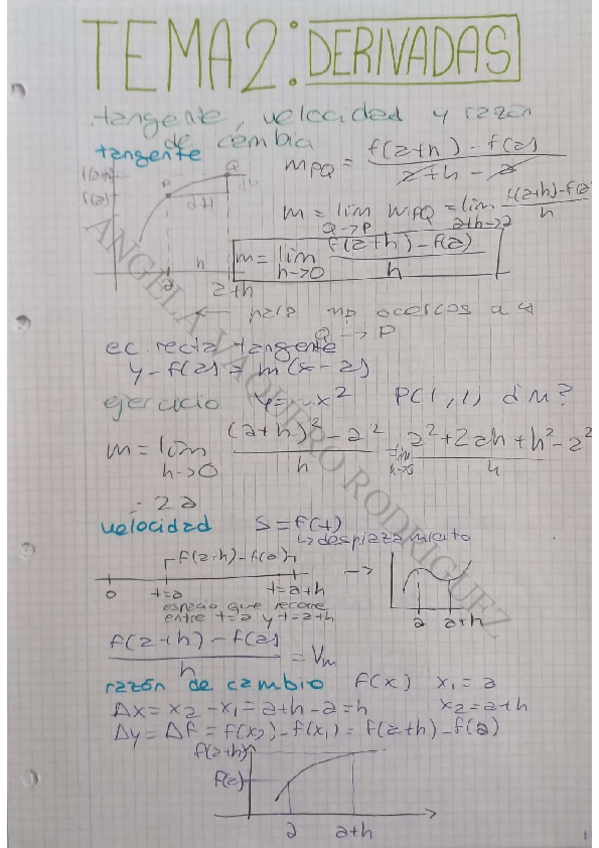 TEMA 2: DERIVADAS
tangente, velocidad y razón
de cambia
tangente
f(a+h)
f(a)
P
Q
a
h
a+h
mPQ = f(a+h) - f(a) / a+h - a
m = lím Q→P mPQ = lím a+h→a f(a+h)-f(a) / h
m = lím h→0 f(a+h) - f(a) / h
← para mp acercas a
Q → P
ec. recta tangente
y - f(a) = m(x - a)
ejercicio y = x² P(1,1) ¿m?
m = lím h→0 (a+h)² - a² / h = lím h→0 a² + 2ah + h² - a² / h
= 2a
velocidad S = f(t)
↳ desplazamiento
f(a+h) - f(a)
0 t=a t=a+h →
espacio que recorre
entre t=a y t=a+h
a a+h
f(a+h) - f(a) / h = Vm
razón de cambio f(x) x₁ = a
Δx = x₂ - x₁ = a+h - a = h x₂ = a+h
Δy = Δf = f(x₂) - f(x₁) = f(a+h) - f(a)
f(a+h)
f(a)
a a+h
ANGELA VAQUERO RODRIGUEZ